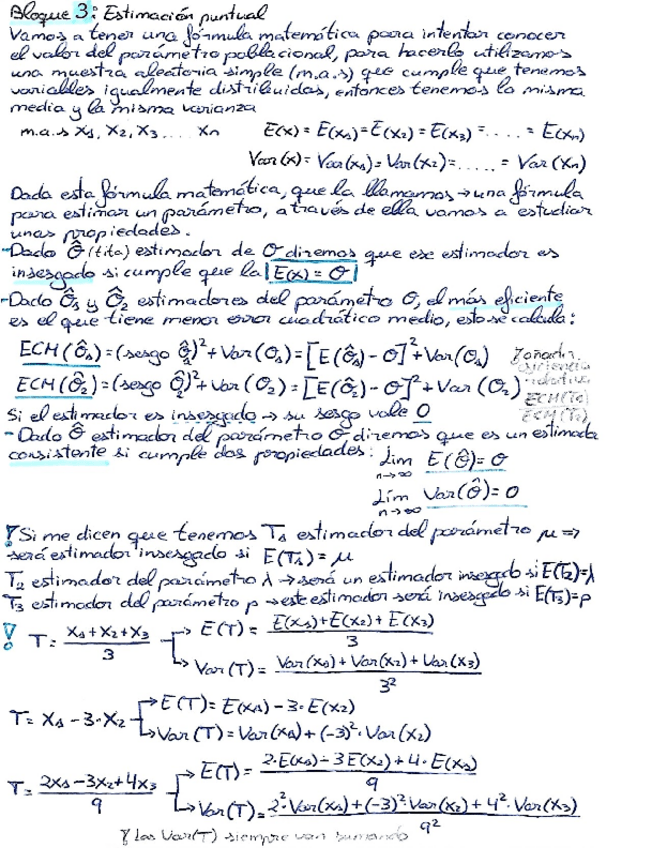 Bloque 3: Estimación puntual
Vamos a tener una fórmula matemática para intentar conocer
el valor del parámetro poblacional, para hacerlo utilizamos
una muestra aleatoria simple (m.a.s) que cumple que tenemos
variables igualmente distribuidas, entonces tenemos la misma
media y la misma varianza
m.a.s X₁, X₂, X₃ .... Xn E(x) = E(x₁) = E(x₂) = E(x₃) = ..... = E(xn)
Var(x) = Var(x₁) = Var(x₂) = ..... = Var(xn)
Dada esta fórmula matemática, que la llamamos → una fórmula
para estimar un parámetro, a través de ella vamos a estudiar
unas propiedades.
- Dado Θ̂ (tita) estimador de Θ diremos que ese estimador es
insesgado si cumple que la E(x) = Θ
- Dado Θ̂₁ y Θ̂₂ estimadores del parámetro Θ, el más eficiente
es el que tiene menor error cuadrático medio, esto se calcula:
ECM(Θ̂₁) = (sesgo Θ̂₁)² + Var(Θ₁) = [E(Θ̂₁) - Θ]² + Var(Θ₁) Y añadir
eficiencia
ECM(Θ̂₂) = (sesgo Θ̂₂)² + Var(Θ₂) = [E(Θ̂₂) - Θ]² + Var(Θ₂) relativa
ECM(T₁)
ECM(T₂)
Si el estimador es insesgado → su sesgo vale 0
- Dado Θ̂ estimador del parámetro Θ diremos que es un estimada
consistente si cumple dos propiedades: Lim n→∞ E(Θ̂) = Θ
Lim n→∞ Var(Θ̂) = 0
! Si me dicen que tenemos T₁ estimador del parámetro μ ⇒
será estimador insesgado si E(T₁) = μ
T₂ estimador del parámetro λ → será un estimador insesgado si E(T₂)=λ
T₃ estimador del parámetro p → este estimador será insesgado si E(T₃)=p
! T = (X₁+X₂+X₃)/3 → E(T) = (E(x₁)+E(x₂)+E(x₃))/3
→ Var(T) = (Var(x₁)+Var(x₂)+Var(x₃))/3²
T = X₁ - 3·X₂ → E(T) = E(x₁) - 3·E(x₂)
→ Var(T) = Var(x₁) + (-3)²·Var(x₂)
T = (2x₁-3x₂+4x₃)/9 → E(T) = (2·E(x₁) - 3E(x₂) + 4·E(x₃))/9
→ Var(T) = (2²·Var(x₁)+(-3)²Var(x₂)+4²·Var(x₃))/9²
Y las Var(T) siempre van sumando